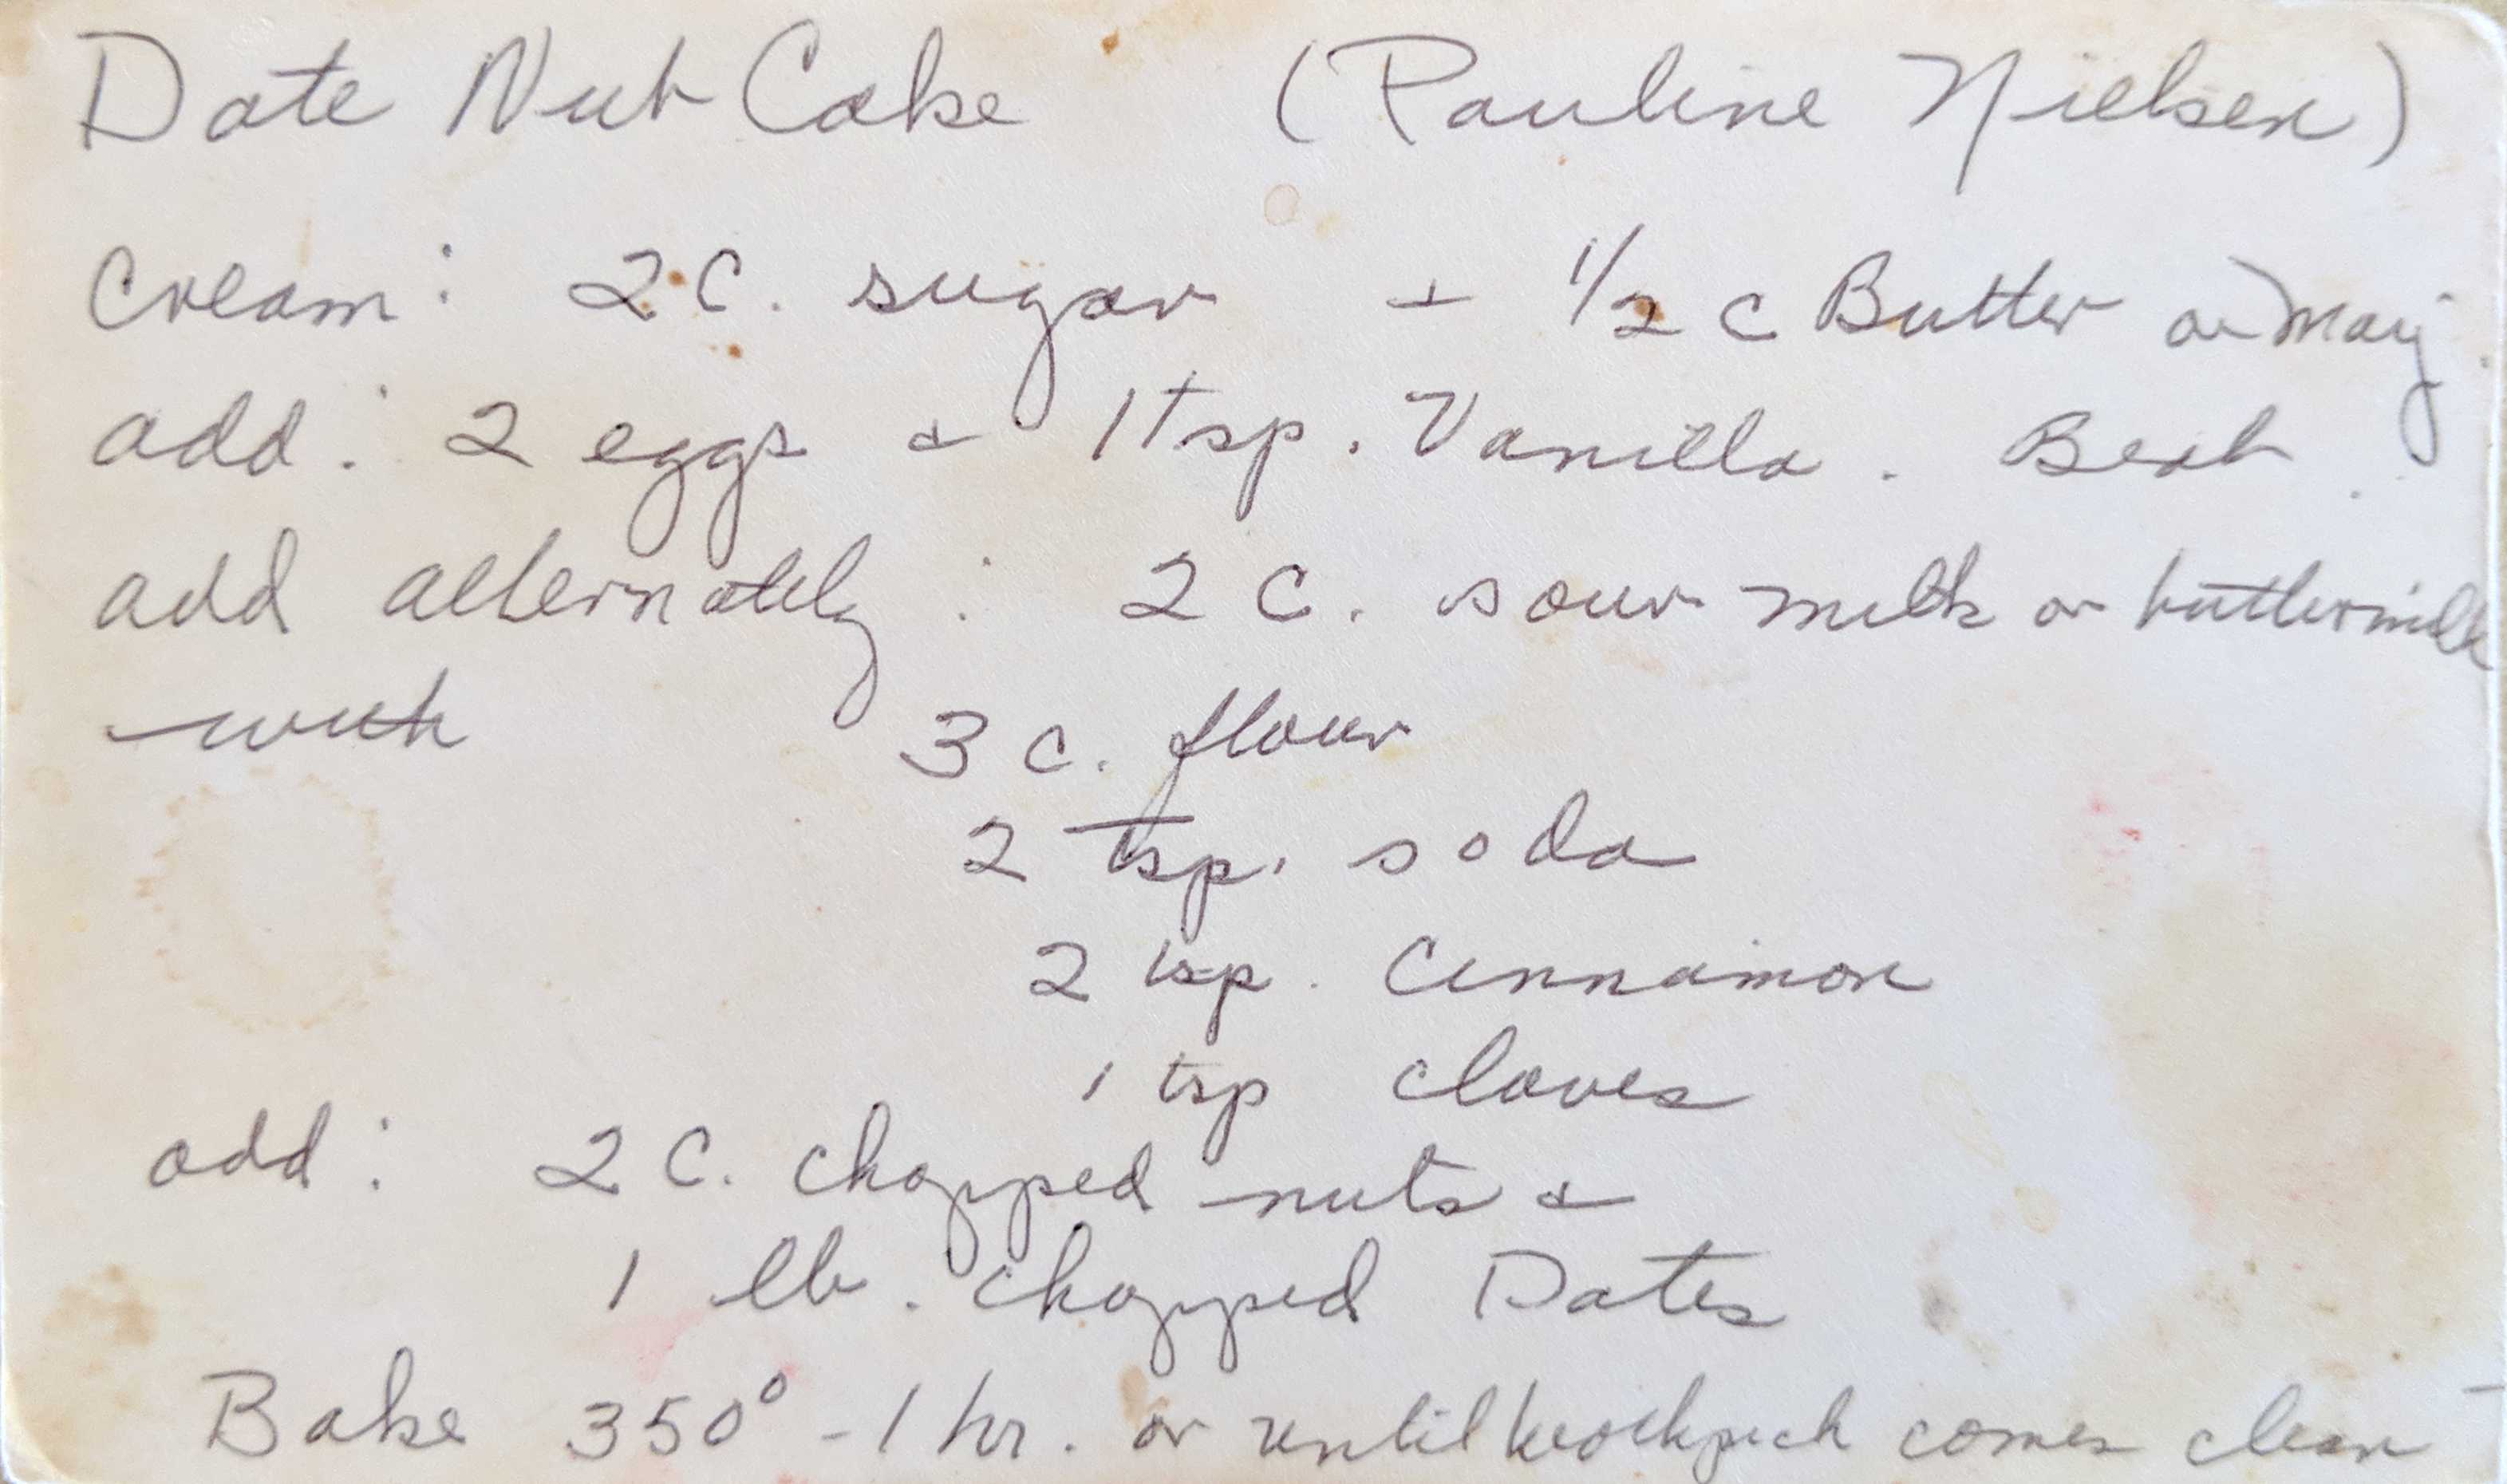 Date Nut Cake (Pauline Nielsen)
Cream: 2 C. sugar + 1/2 C Butter or Marj.
add: 2 eggs + 1 tsp. Vanilla. Beat.
add alternately: 2 C. sour milk or buttermilk
with 3 C. flour
2 tsp. soda
2 tsp. Cinnamon
1 tsp cloves
add: 2 C. chopped nuts +
1 lb. chopped Dates
Bake 350° - 1 hr. or until toothpick comes clean